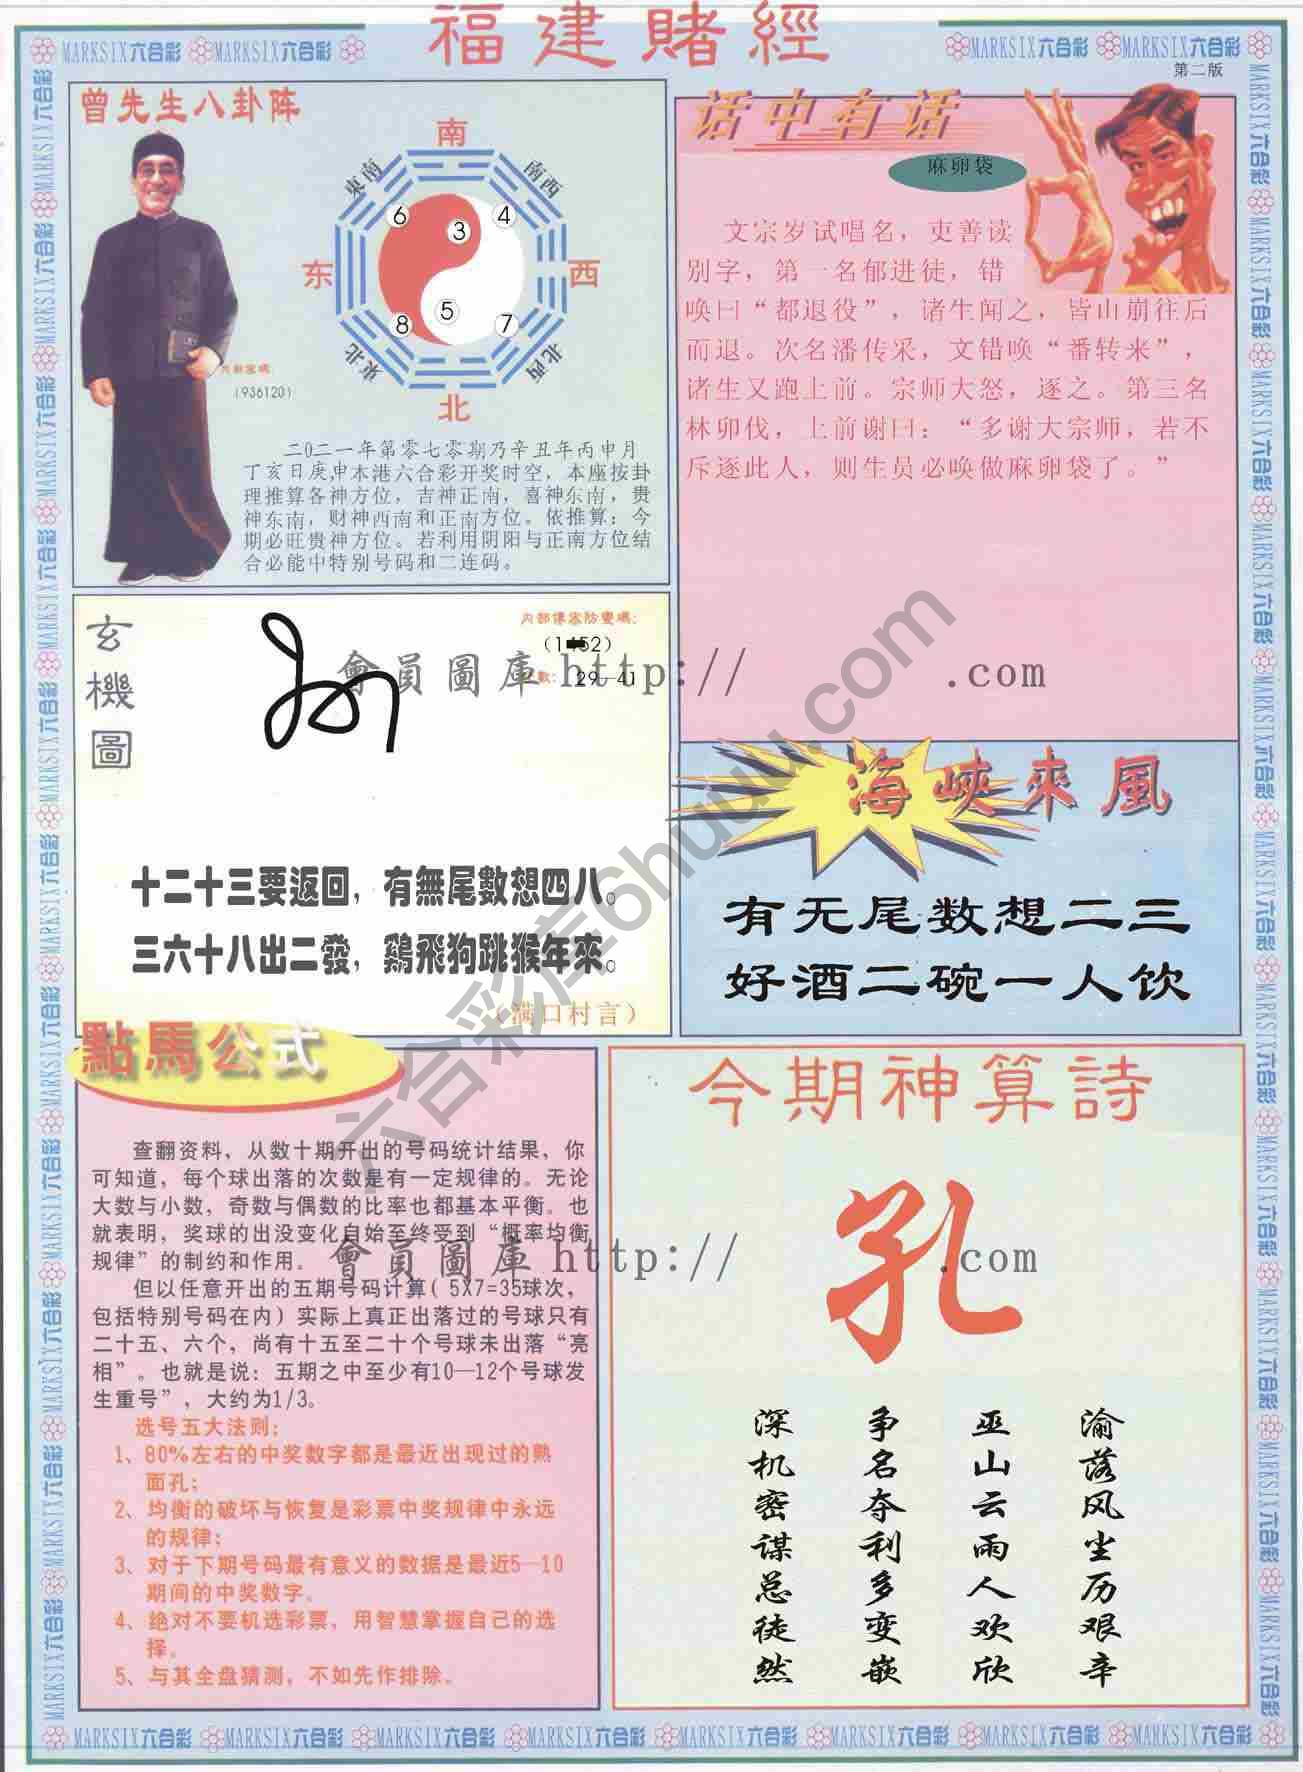 福建賭經
MARKSIX六合彩 MARKSIX六合彩
MARKSIX六合彩 MARKSIX六合彩
第二版
曾先生八卦阵
南
東南
南西
6
3
4
东
西
8
5
7
東北
北西
北
(936120)
二0二一年第零七零期乃辛丑年丙申月
丁亥日庚申本港六合彩开奖时空，本座按卦
理推算各神方位，吉神正南，喜神东南，贵
神东南，财神西南和正南方位。依推算：今
期必旺贵神方位。若利用阴阳与正南方位结
合必能中特别号码和二连码。
话中有话
麻卵袋
文宗岁试唱名，吏善读
别字，第一名郁进徒，错
唤曰“都退役”，诸生闻之，皆山崩往后
而退。次名潘传采，文错唤“番转来”，
诸生又跑上前。宗师大怒，逐之。第三名
林卯伐，上前谢曰：“多谢大宗师，若不
斥逐此人，则生员必唤做麻卵袋了。”
玄機圖
29—41
會員圖庫 http:// .com
十二十三要返回，有無尾數想四八。
三六十八出二發，鷄飛狗跳猴年來。
（满口村言）
海峽來風
有无尾数想二三
好酒二碗一人饮
點馬公式
查翻资料，从数十期开出的号码统计结果，你
可知道，每个球出落的次数是有一定规律的。无论
大数与小数，奇数与偶数的比率也都基本平衡。也
就表明，奖球的出没变化自始至终受到“概率均衡
规律”的制约和作用。
但以任意开出的五期号码计算( 5X7=35球次，
包括特别号码在内）实际上真正出落过的号球只有
二十五、六个，尚有十五至二十个号球未出落“亮
相”。也就是说：五期之中至少有10—12个号球发
生重号”，大约为1/3。
选号五大法则：
1、80%左右的中奖数字都是最近出现过的熟
面孔；
2、均衡的破坏与恢复是彩票中奖规律中永远
的规律；
3、对于下期号码最有意义的数据是最近5—10
期间的中奖数字。
4、绝对不要机选彩票，用智慧掌握自己的选
择。
5、与其全盘猜测，不如先作排除。
今期神算詩
孔
會員圖庫 http:// .com
渝落风尘历艰辛
巫山云雨人欢欣
争名夺利多变嵌
深机密谋总徒然
六合彩库6huuu.com
MARKSIX六合彩 MARKSIX六合彩 MARKSIX六合彩 MARKSIX六合彩 MARKSIX六合彩 MARKSIX六合彩 MARKSIX六合彩 MARKSIX六合彩